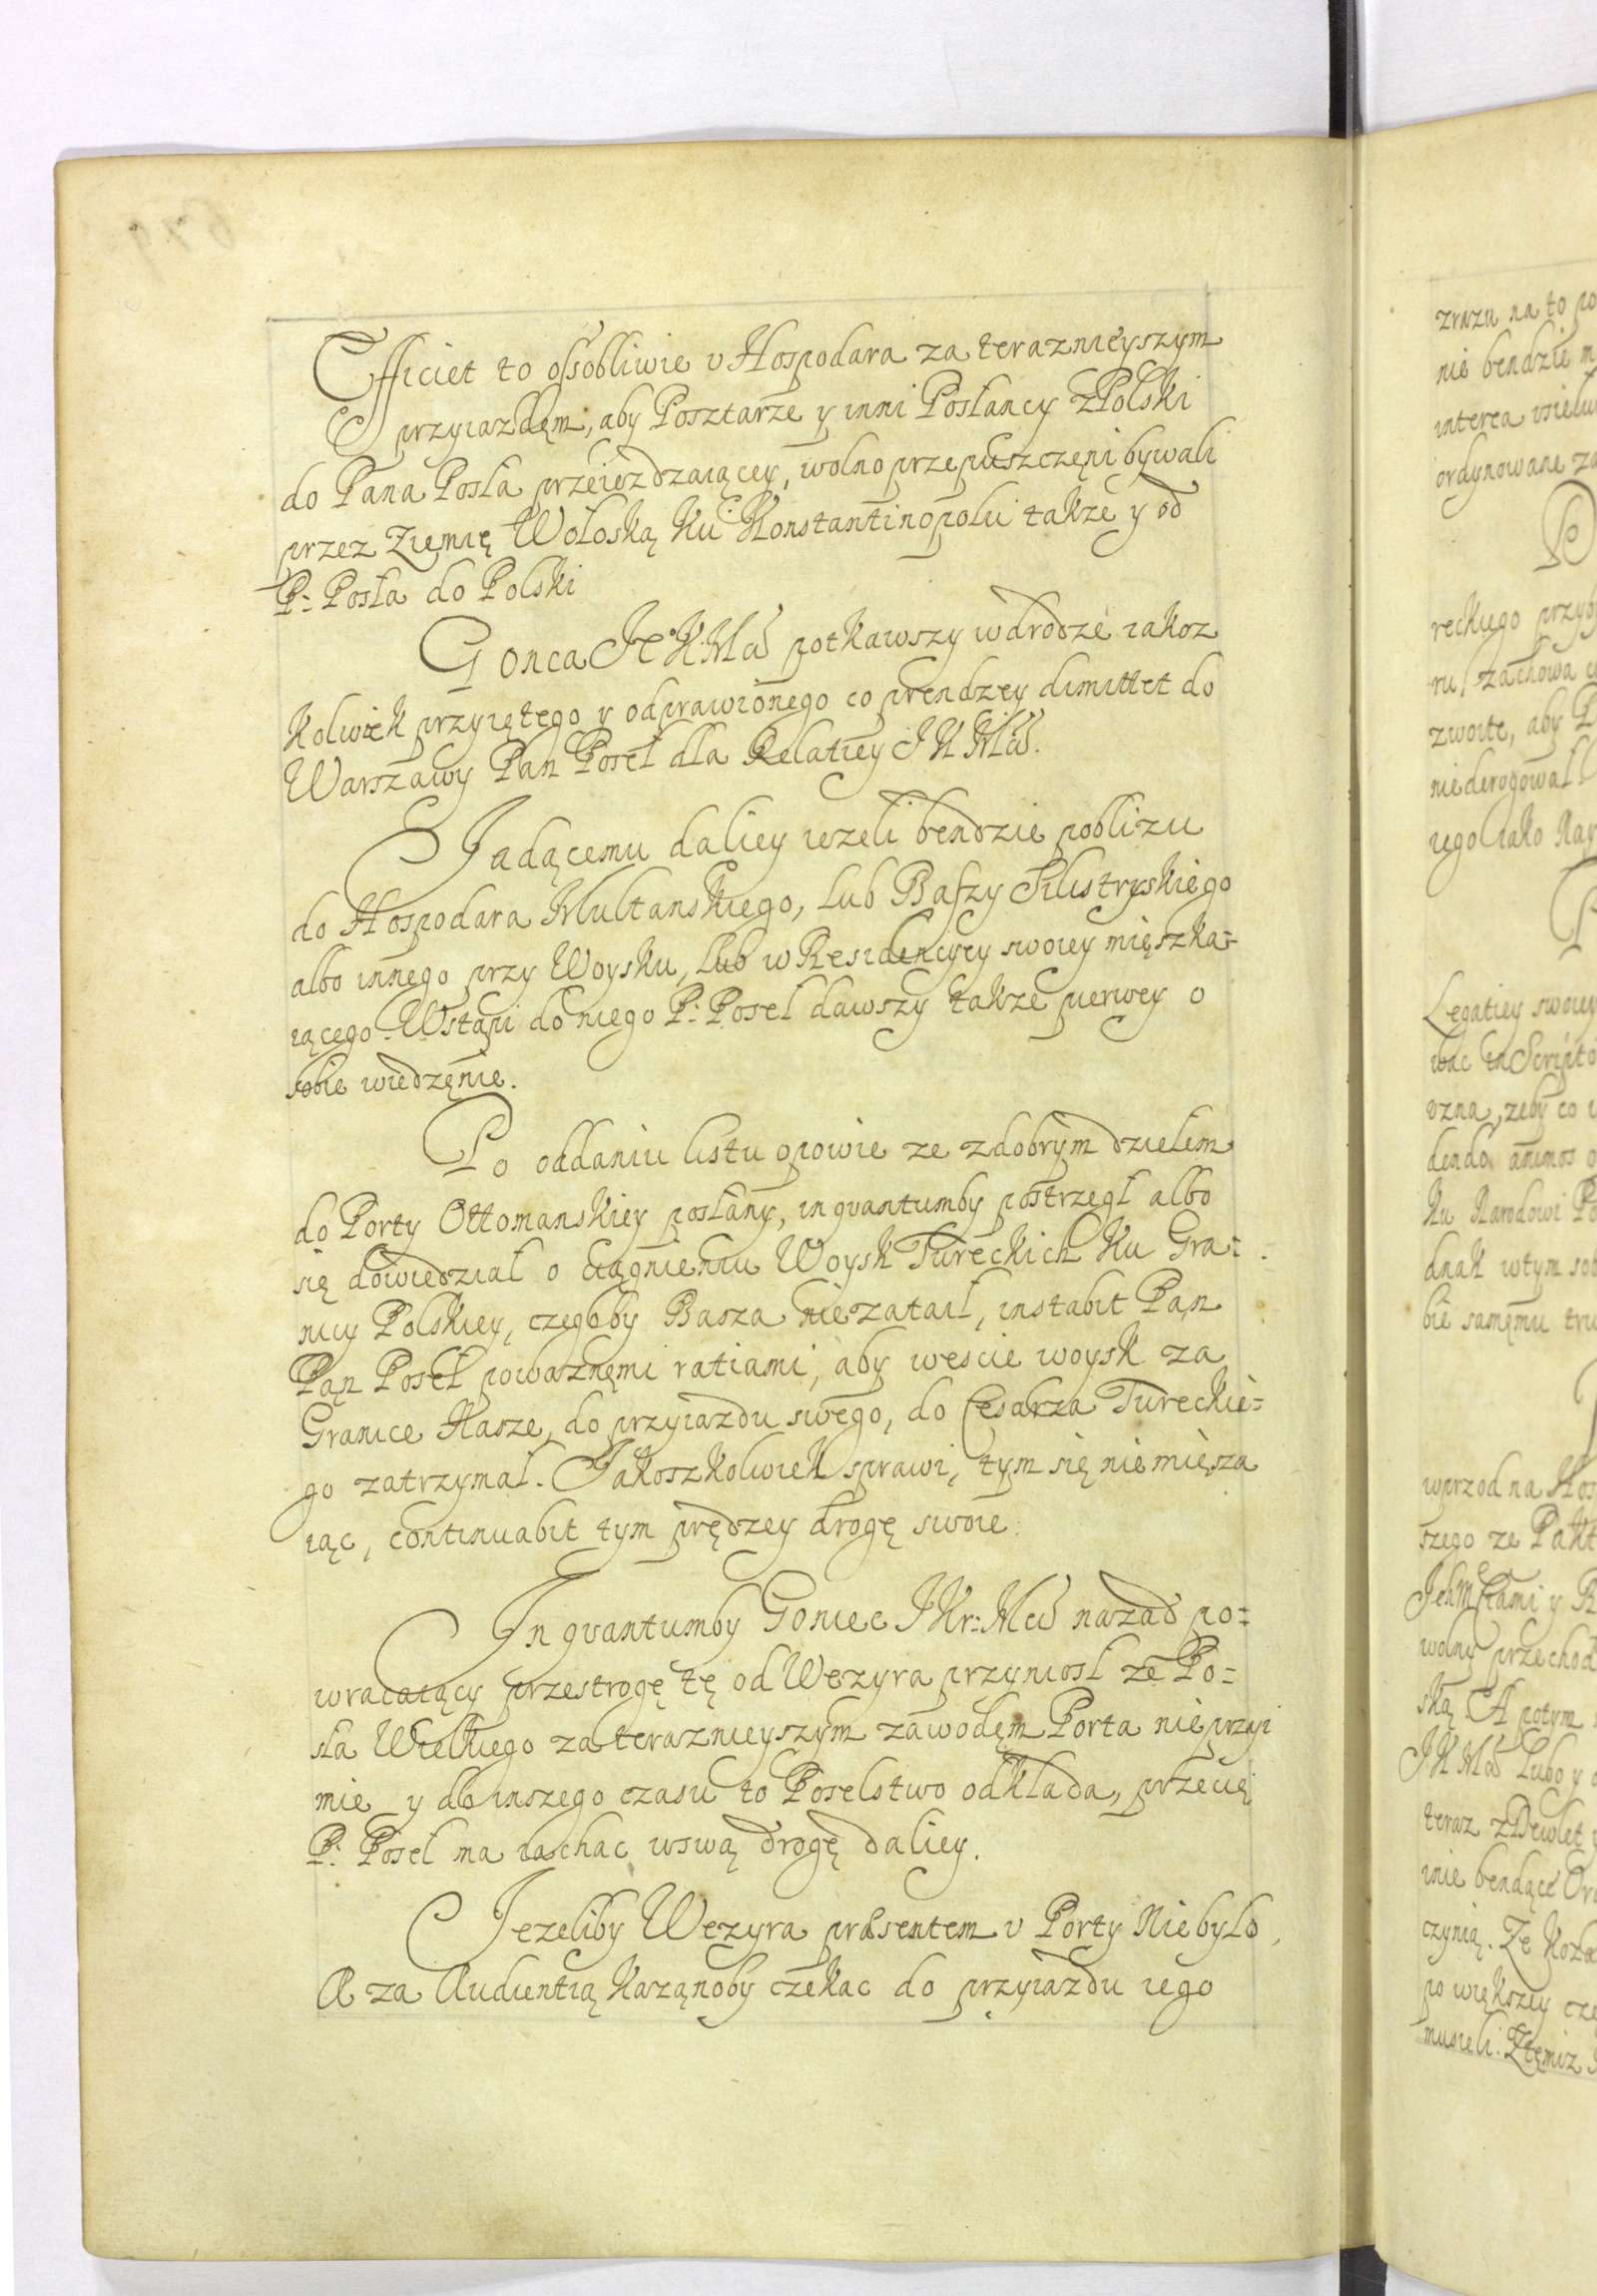 Efficiet to ossobliwie v Hospodara za teraznieyszym
przyiazdęm, aby Posztarze y inni Posłancy z Polski
do Pana Posła przeiezdzaiącey, wolno przepuszczęni bywali
przez Ziemię Wołoską Ku Konstantinopolu takze y od
P: Posła do Polski
Gonca Je K Mci potkawszy wdrodze iakoz
kolwiek przyiętego y odprawionego co prendzey dimittet do
Warszawy Pan Poseł dla Relatiey J K Mci.
Jadącemu daliey iezeli bendzie poblizu
do Hospodara Multanskiego, lub Baszy Silistryskiego
albo innego przy Woysku, lub w Residencyey swoiey mięszka=
iącego. Wstąpi do niego P: Poseł dawszy takze pierwey o
sobie wiedzęnie.
Po oddaniu listu opowie ze zdobrym dziełem
do Porty Ottomanskiey posłany, inquantumby postrzegł albo
się dowiedział o Ciągnieniu Woysk Tureckich Ku Gra=
nicy Polskiey, czegoby Basza niezataił, instabit Pan
Pan Poseł powaznęmi ratiami, aby weście woysk za
Granice Nasze, do przyiazdu swego, do Cesarza Tureckie=
go zatrzymał. Jakoszkolwiek sprawi, tym się nie mięsza
iąc, continuabit tym prędzey drogę swoie:
In quantumby Goniec J Kr: Mci nazad po=
wracaiący przestrogę tę od Wezyra przyniosł ze Po=
sła Wielkiego za teraznieyszym zawodęm Porta nie przyi
mie y do inszego czasu to Poselstwo odkłada, przecię
P: Poseł ma iachac wswą drogę daliey.
Jezeliby Wezyra præsentem v Porty Niebyło,
A za Audientią kazanoby czekac do przyiazdu iego
zrazu na to po
nie bendzie m
interea
ordynowane za
reckiego przyb
ru, zachowa
zwoite, aby P
niederogował
iego iako Nay
Legatiey swoiey
wac in Scripto
vzna, zeby co
dendo animos
Ku Narodowi Po
dnak wtym sob
bie samęmu tru
wprzod na Hos
szego ze Pakt
wolny przechod
ską. A potym
J K Mci Lubo y
teraz z Dewlet
inie bendące Or
czynią. Ze Koza
po większey czę
musieli.